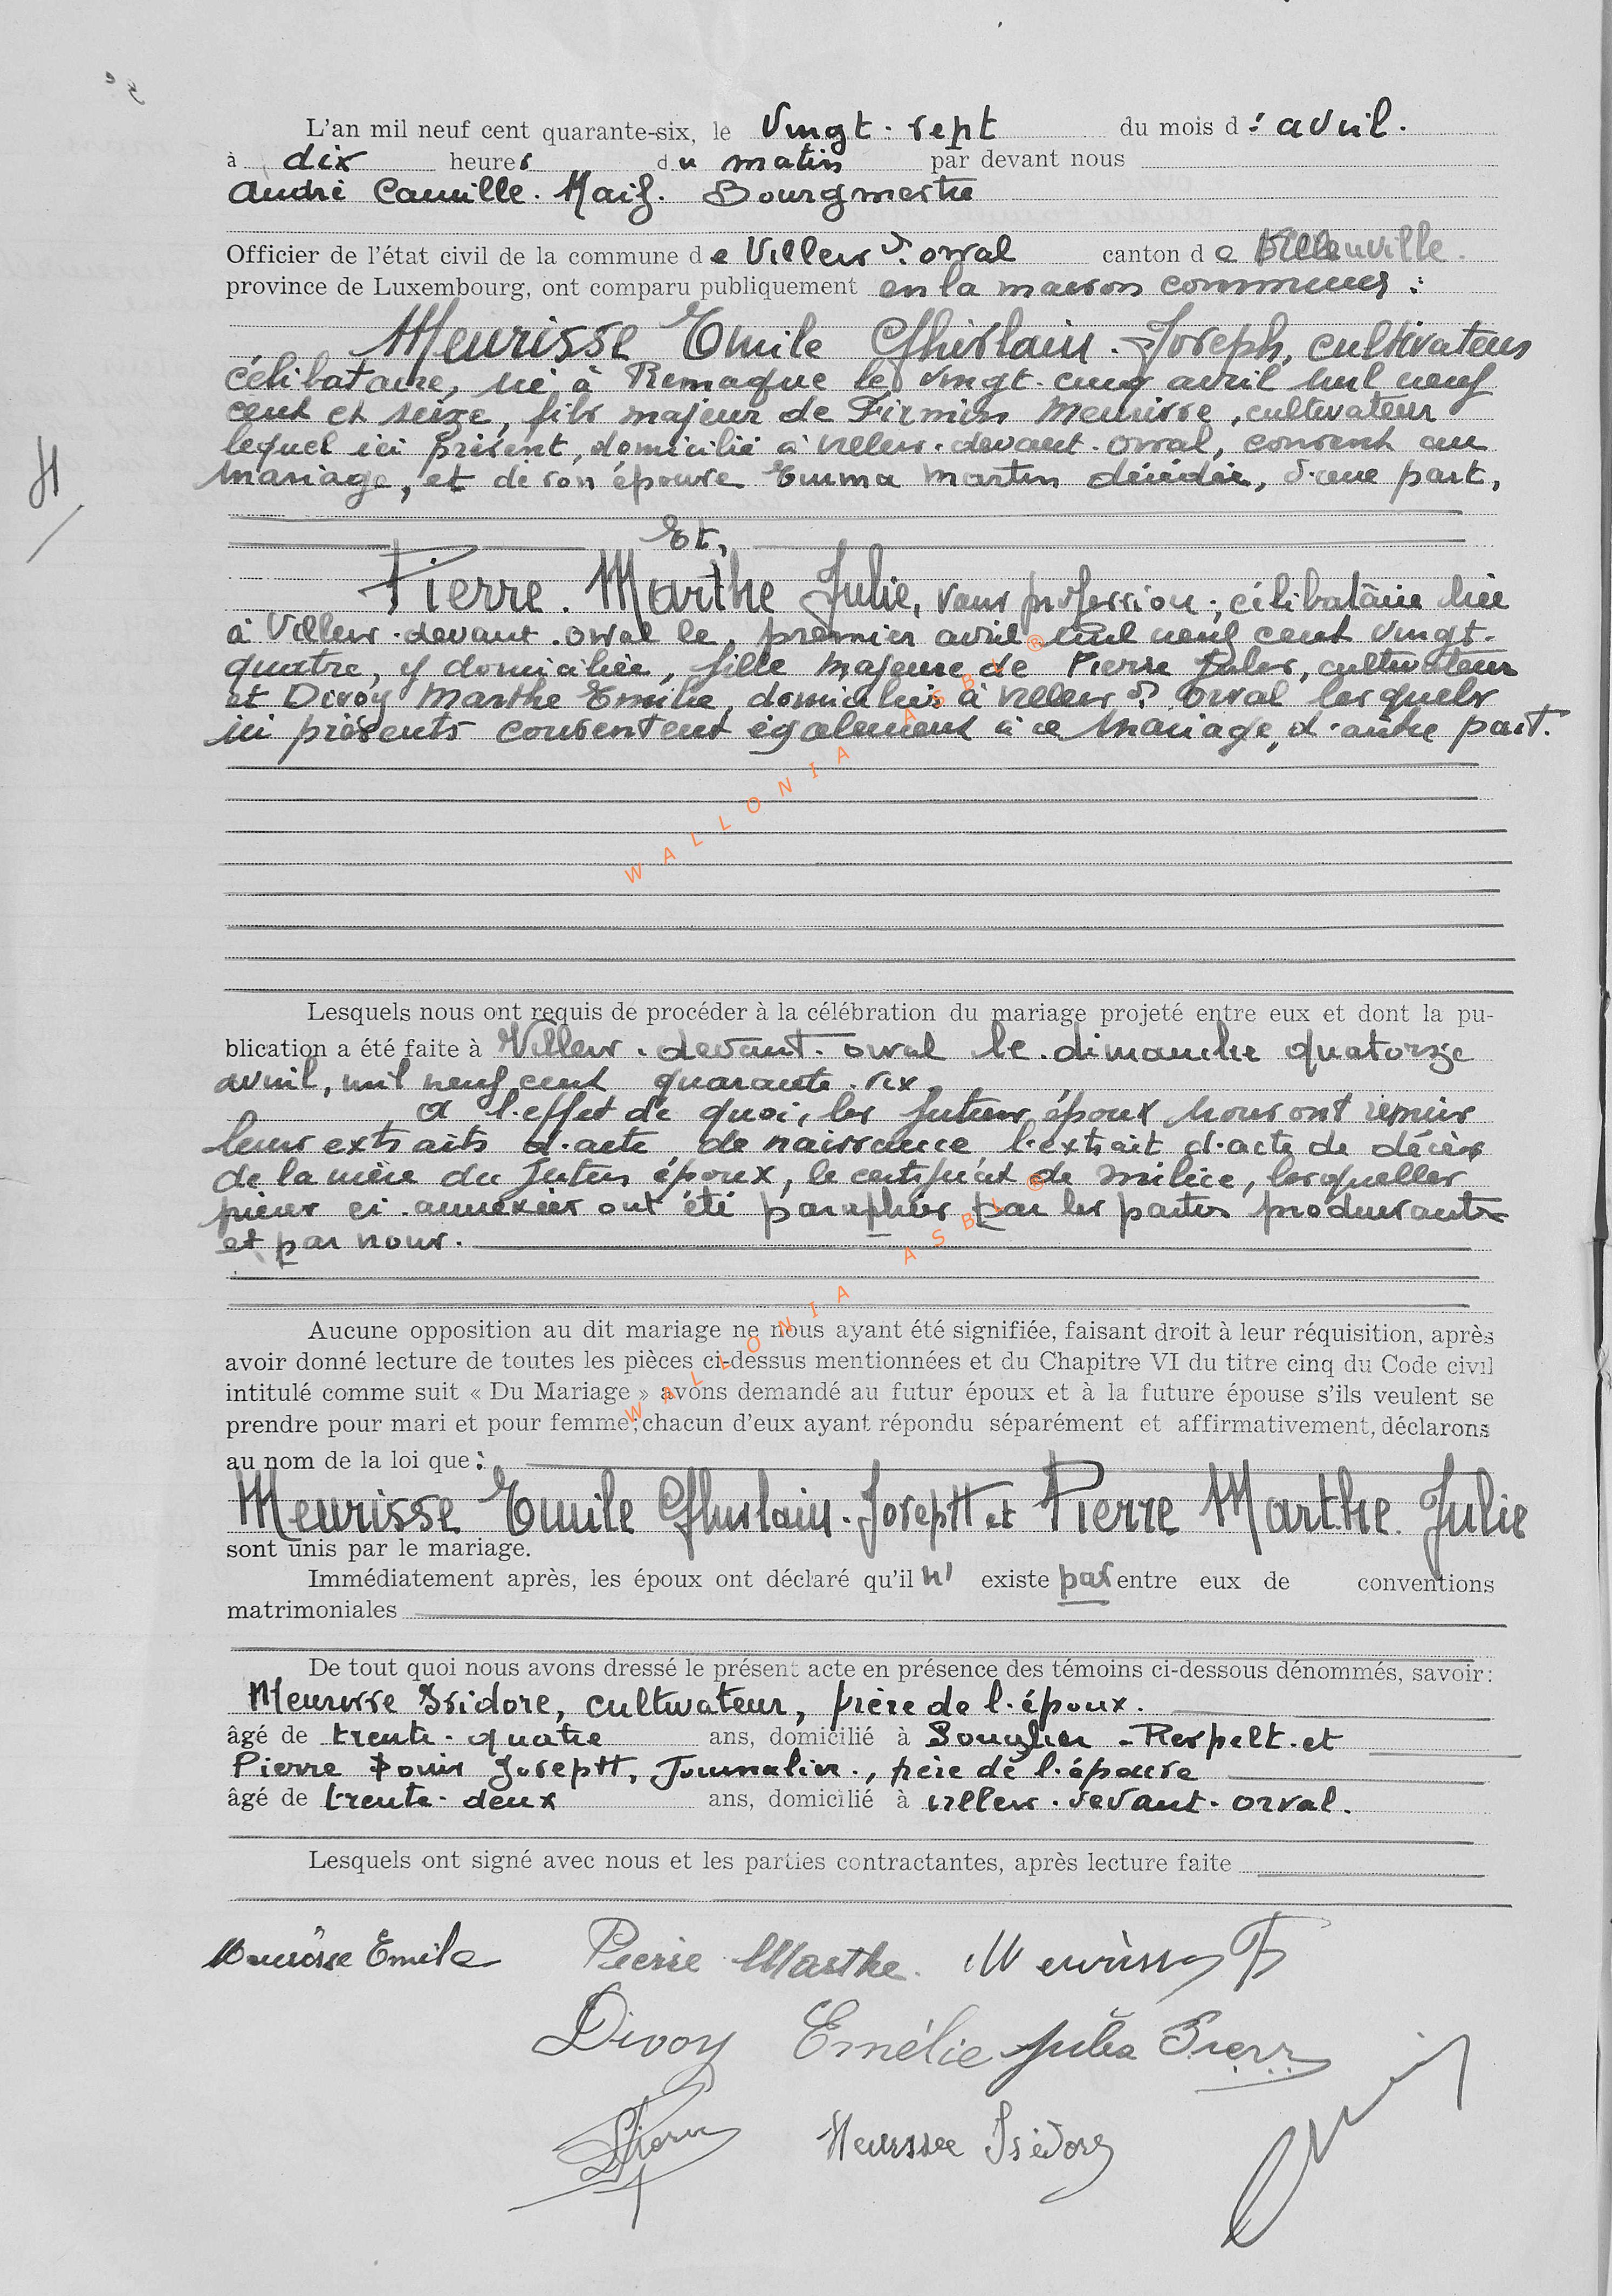 L'an mil neuf cent quarante-six, le Vingt-sept du mois d'avril.
à dix heures du matin par devant nous
André Camille. Bourgmestre
Officier de l'état civil de la commune de Villers d. orval canton de
province de Luxembourg, ont comparu publiquement en la maison commune :
Meurisse Emile Ghislain-Joseph, cultivateur
célibataire, né à Remagne le vingt-cinq avril mil neuf
cent et seize, fils majeur de Firmin Meurisse, cultivateur
lequel ici présent, domicilié à Villers-devant-Orval, consent au
mariage, et de son épouse Emma Martin décédée, d'une part,
Et,
Pierre. Marthe Julie, sans profession, célibataire née
à Villers-devant-orval le premier avril mil neuf cent vingt-
quatre, y domiciliée, fille majeure de Pierre Jules, cultivateur
et Divoy Marthe Emilie, domiciliés à Villers d. Orval lesquels
ici présents consentent également à ce mariage, d'autre part.
WALLONIA ASBL ®
Lesquels nous ont requis de procéder à la célébration du mariage projeté entre eux et dont la pu-
blication a été faite à Villers-devant-orval le dimanche quatorze
avril, mil neuf cent quarante-six,
A l'effet de quoi, les futurs époux nous ont remis
leurs extraits d'acte de naissance, l'extrait d'acte de décès
de la mère du futur époux, le certificat de milice, lesquelles
pièces ci-annexées ont été paraphées par les parties produisantes
et par nous.
WALLONIA ASBL ®
Aucune opposition au dit mariage ne nous ayant été signifiée, faisant droit à leur réquisition, après
avoir donné lecture de toutes les pièces ci-dessus mentionnées et du Chapitre VI du titre cinq du Code civil
intitulé comme suit « Du Mariage » avons demandé au futur époux et à la future épouse s'ils veulent se
prendre pour mari et pour femme; chacun d'eux ayant répondu séparément et affirmativement, déclarons
au nom de la loi que :
Meurisse Emile Ghislain-Joseph et Pierre Marthe Julie
sont unis par le mariage.
Immédiatement après, les époux ont déclaré qu'il n' existe pas entre eux de conventions
matrimoniales
De tout quoi nous avons dressé le présent acte en présence des témoins ci-dessous dénommés, savoir :
Meurisse Isidore, cultivateur, frère de l'époux.
âgé de trente-quatre ans, domicilié à Rospelt et
Pierre Louis Joseph, Journalier, frère de l'épouse
âgé de trente-deux ans, domicilié à Villers-devant-orval.
Lesquels ont signé avec nous et les parties contractantes, après lecture faite
Meurisse Emile Pierre Marthe. Meurisse F
Divoy Emélie Jules Pierre
Pierre Meurisse Isidore